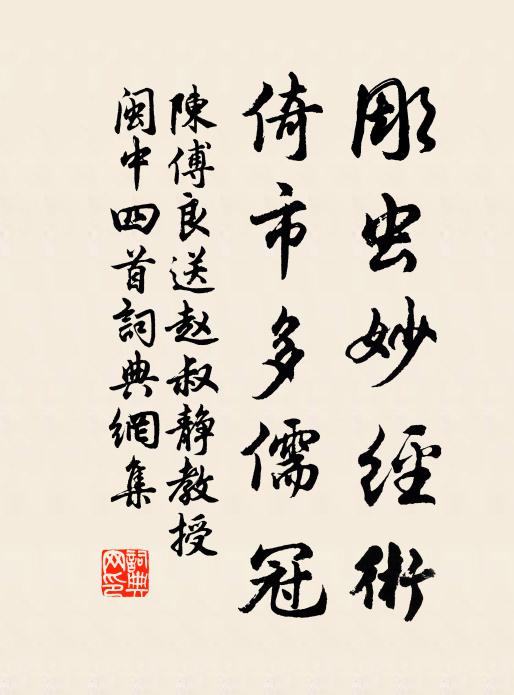 彫虫妙經術
倚市多儒冠
陳傅良送赵叔静教授
闽中四首詞典網集
詞典网印